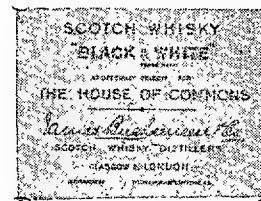 SCOTCH WHISKY
"BLACK & WHITE"
FOR
THE HOUSE OF COMMONS
James Buchanan & Co
SCOTCH WHISKY DISTILLERS
GLASGOW & LONDON